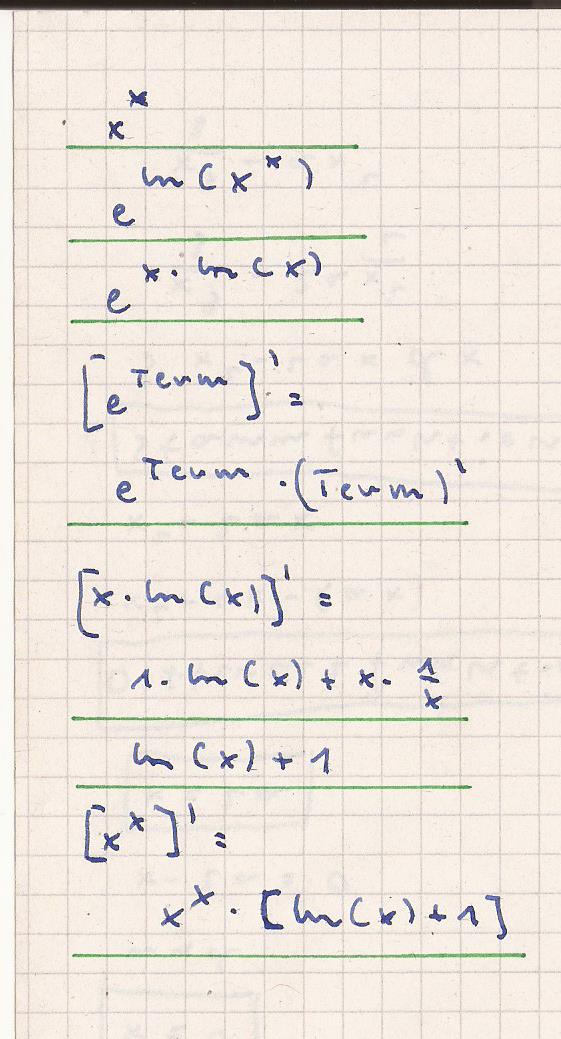 x^x
e^ln(x^x)
e^x·ln(x)
[e^Term]' =
e^Term · (Term)'
[x · ln(x)]' =
1 · ln(x) + x · 1/x
ln(x) + 1
[x^x]' =
x^x · [ln(x) + 1]